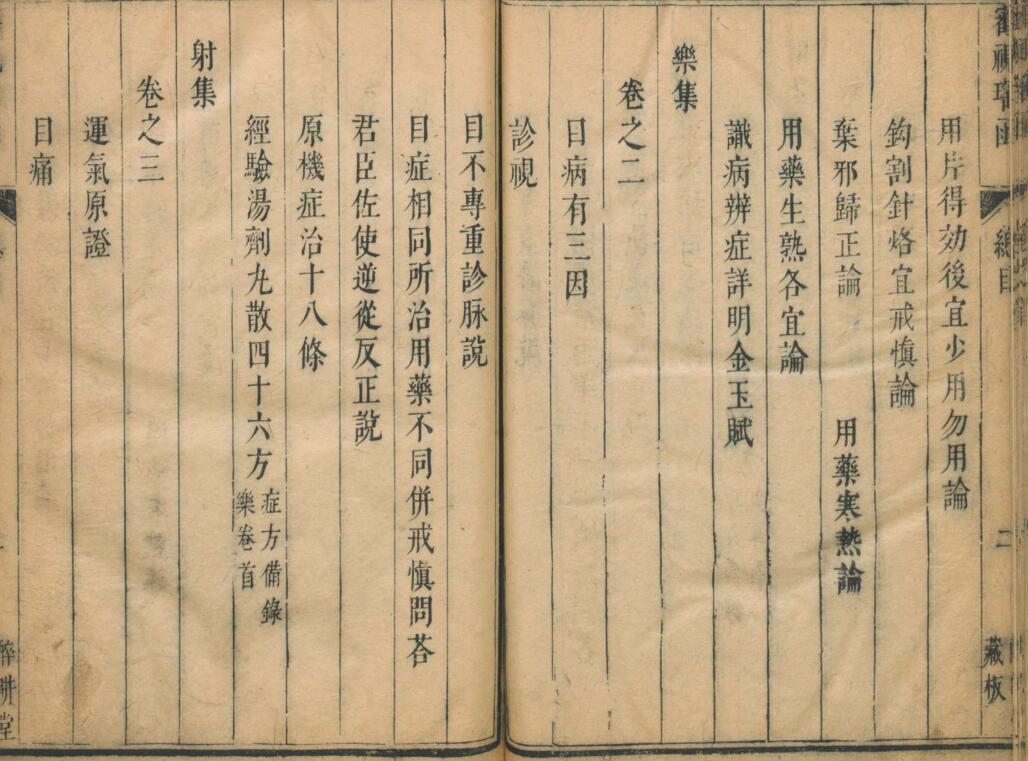 審視瑤函 總目 二 藏板
用片得効後宜少用勿用論
鈎割針烙宜戒愼論
棄邪歸正論 用藥寒熱論
用藥生熟各宜論
識病辨症詳明金玉賦
樂集
卷之二
目病有三因
診視
目不專重診脉說
目症相同所治用藥不同併戒愼問荅
君臣佐使逆從反正說
原機症治十八條
經驗湯劑丸散四十六方 症方備錄
樂卷首
射集
卷之三
運氣原證
目痛
醉耕堂